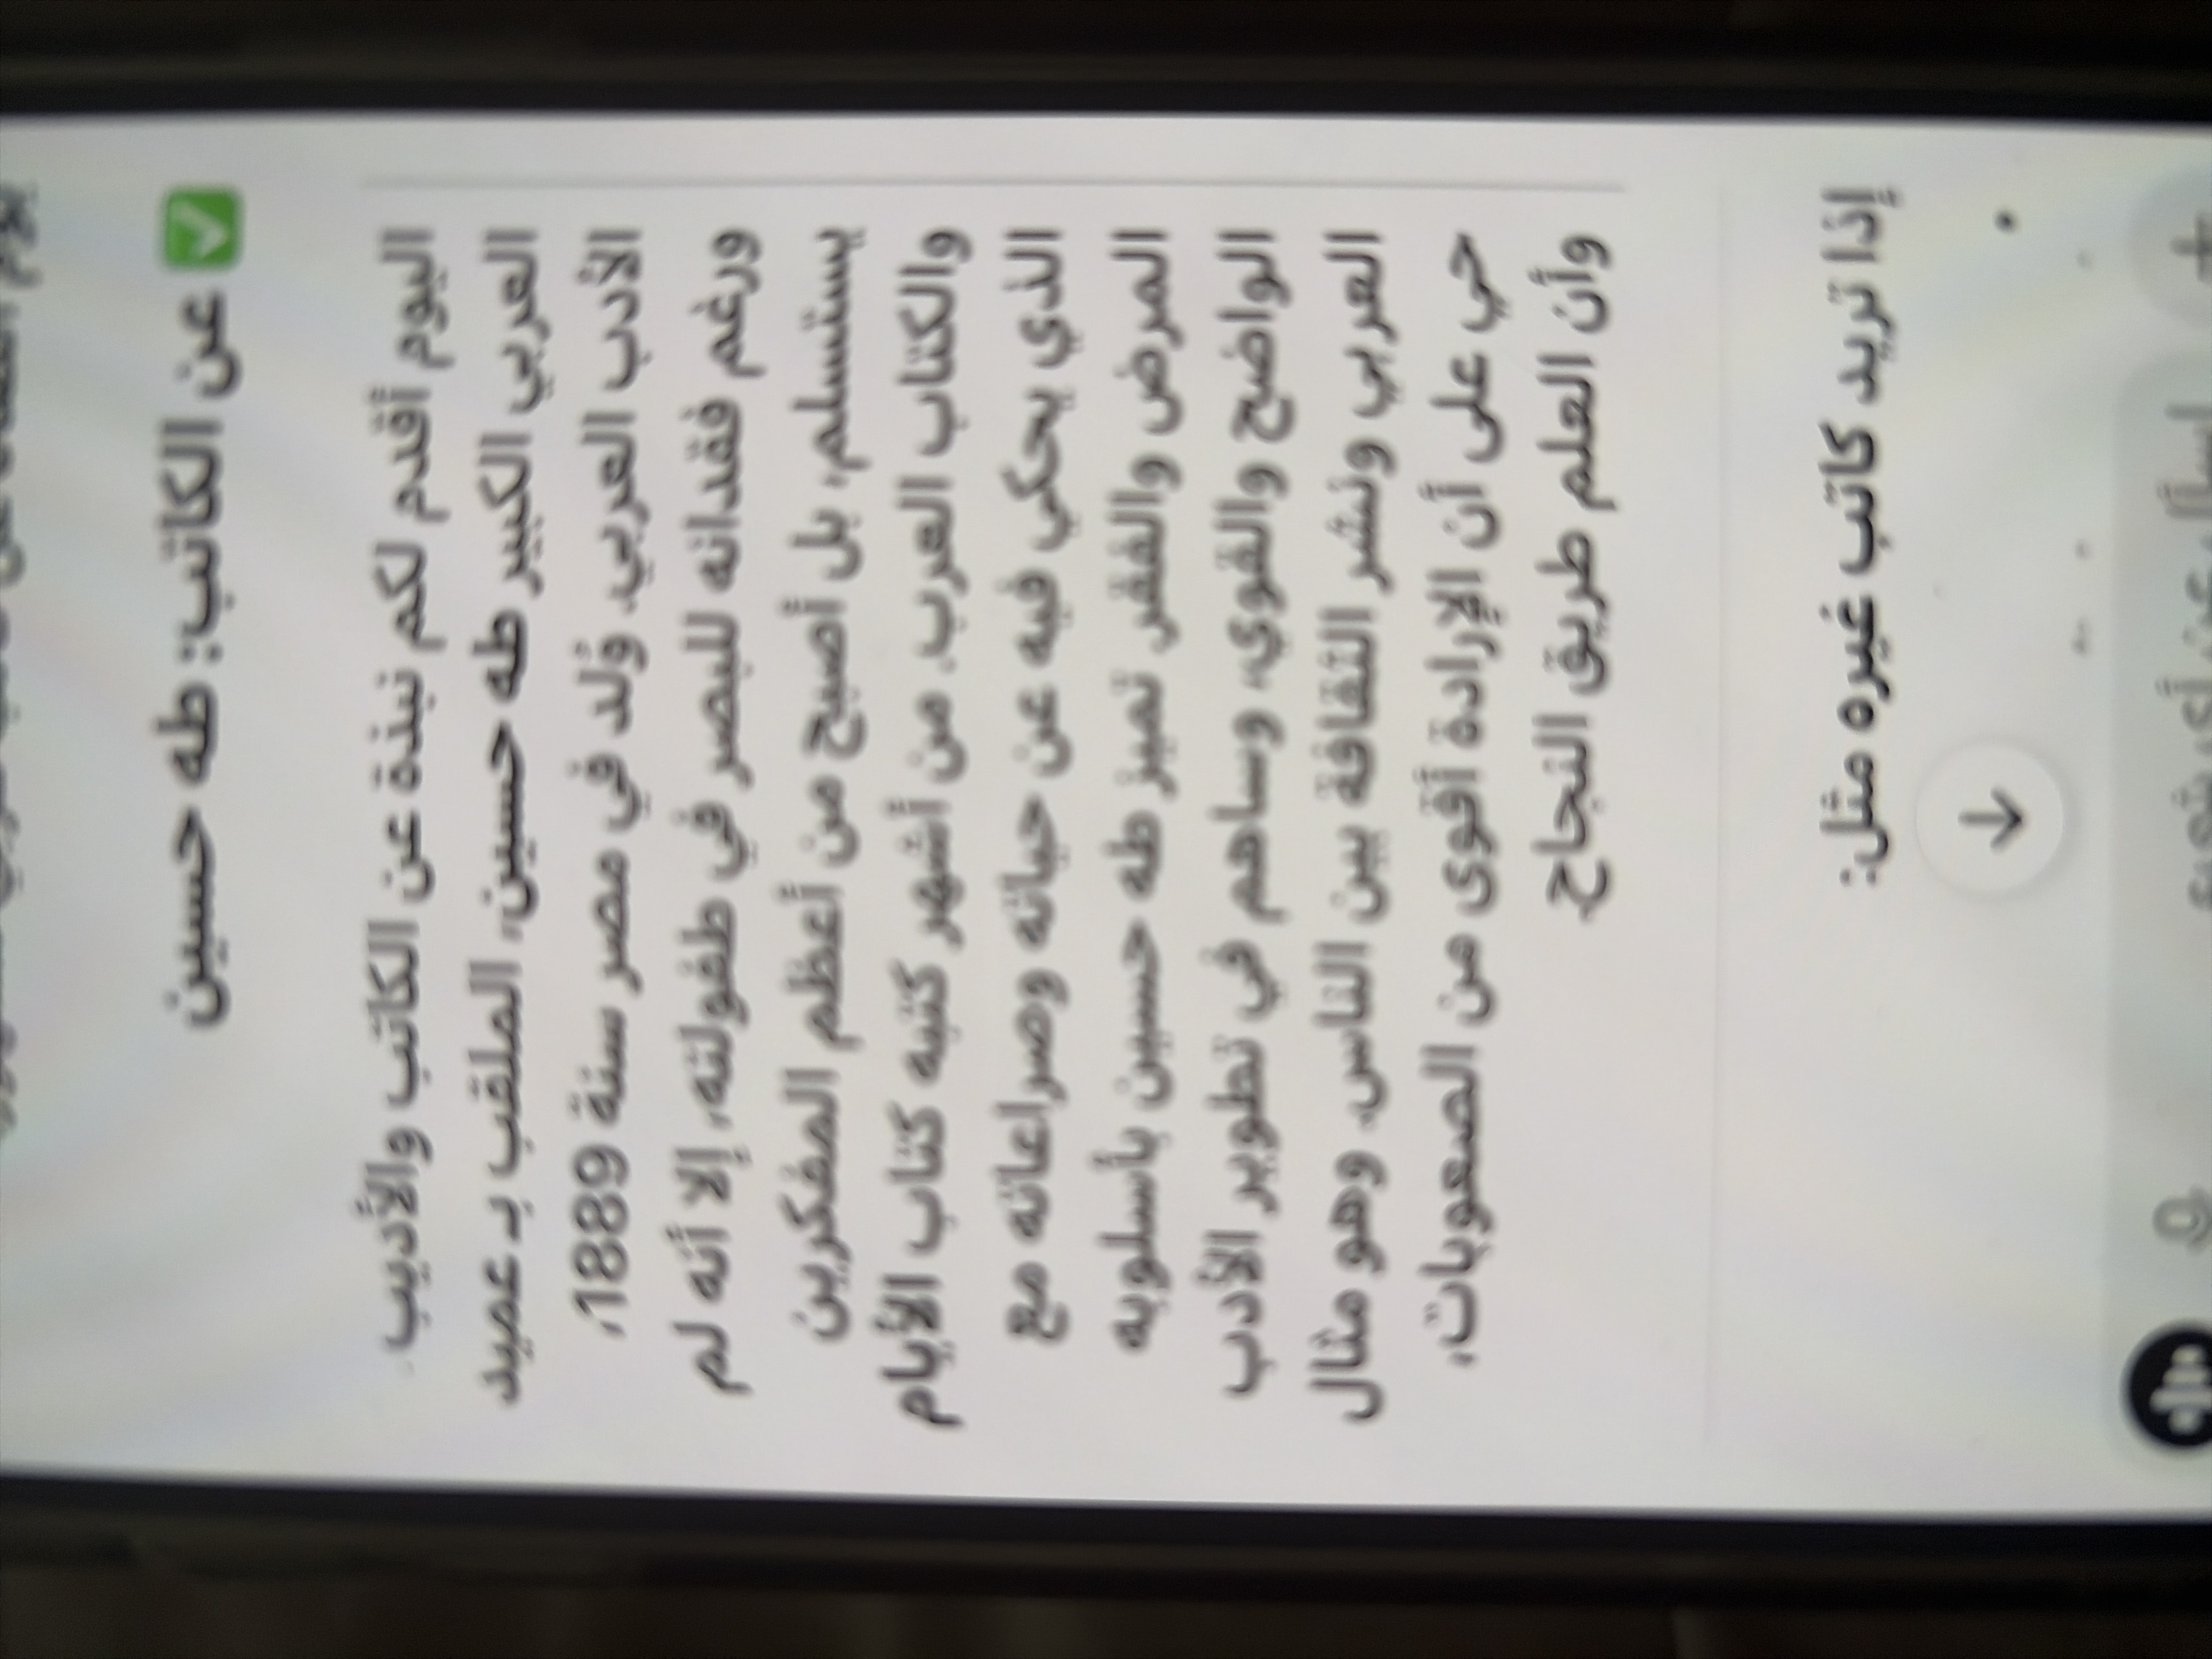 ✅ عن الكاتب: طه حسين
اليوم أقدم لكم نبذة عن الكاتب والأديب
العربي الكبير طه حسين، الملقب بـ عميد
الأدب العربي. وُلد في مصر سنة 1889،
ورغم فقدانه للبصر في طفولته، إلا أنه لم
يستسلم، بل أصبح من أعظم المفكرين
والكتاب العرب. من أشهر كتبه كتاب الأيام
الذي يحكي فيه عن حياته وصراعاته مع
المرض والفقر. تميز طه حسين بأسلوبه
الواضح والقوي، وساهم في تطوير الأدب
العربي ونشر الثقافة بين الناس. وهو مثال
حي على أن الإرادة أقوى من الصعوبات،
وأن العلم طريق النجاح.
إذا تريد كاتب غيره مثل: